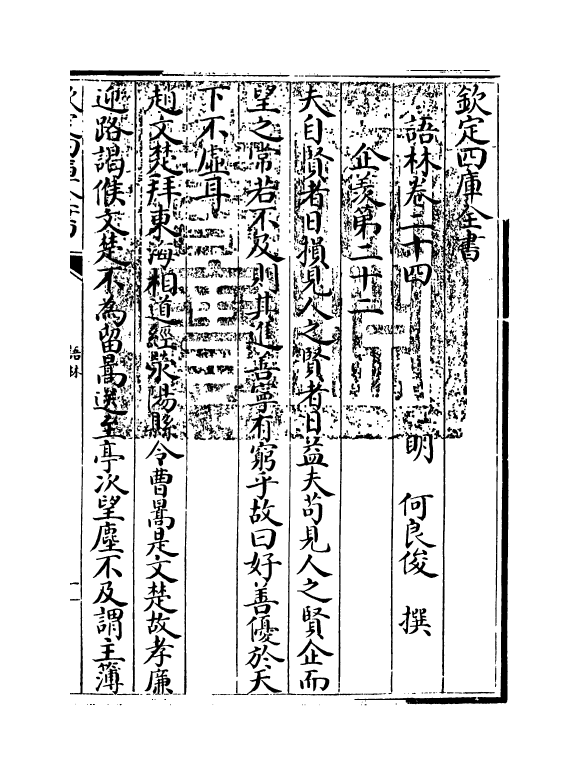 欽定四庫全書
語林卷二十四　明　何良俊　撰
企羨第二十二
夫自賢者日損見人之賢者日益夫苟見人之賢企而
望之常若不及則其進善寧有窮乎故曰好善優於天
下不虛耳
趙文楚拜東海相道經滎陽縣令曹暠是文楚故孝廉
迎路謁候文楚不為留暠送至亭次望塵不及謂主簿
語林